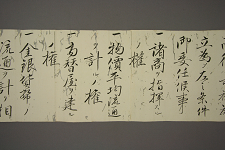 立為ニ左ノ条件
即委任候事
一諸商ヲ指揮スル
ノ権
一物價平均流通
ヲ計ルノ権
一為替屋ヲ建ル
ノ権
一金銀貸弊ノ
流通ヲ計リ相